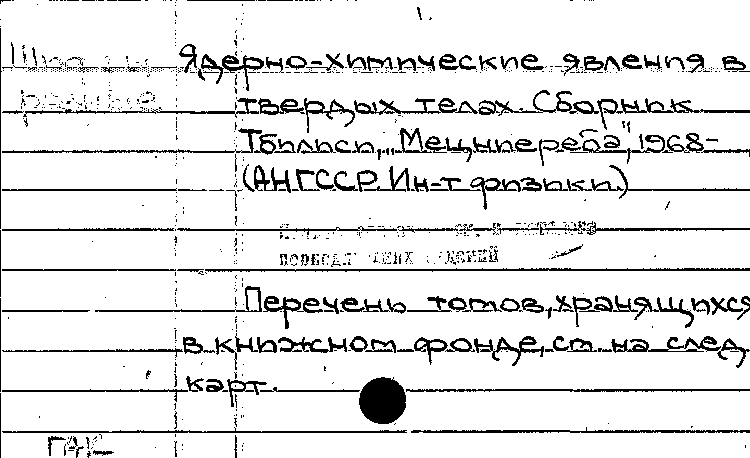 1.
Шифры разные
Ядерно-химические явления в
твердых телах. Сборник
Тбилиси, „Мецниереба", 1968-
(АН ГССР. Ин-т физики.)
см. в каталоге
Перечень томов, хранящихся
в книжном фонде, см. на след.
карт.
ГАК